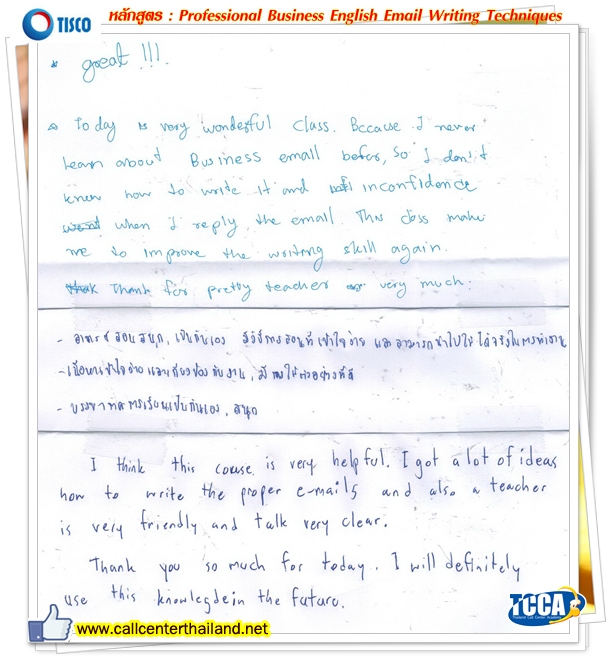 TISCO
หลักสูตร : Professional Business English Email Writing Techniques
* great !!!
Today is very wonderful class. Because I never
learn about Business email befor, so I don't
know how to write it and inconfidence
when I reply the email. This class make
me to improve the writing skill again.
Thank for pretty teacher very much.
- อาจารย์สอนสนุก, เป็นกันเอง มีวิธีการสอนที่เข้าใจง่าย และสามารถนำไปใช้ได้จริงในการทำงาน
- เนื้อหาเข้าใจง่าย และเกี่ยวข้องกับงาน, มีการให้ตัวอย่างที่ดี
- บรรยากาศการเรียนเป็นกันเอง, สนุก
I think this course is very helpful. I got a lot of ideas
how to write the proper e-mails and also a teacher
is very friendly and talk very clear.
Thank you so much for today. I will definitely
use this knowlegdein the future.
TCCA
Thailand Call Center Academy
www.callcenterthailand.net